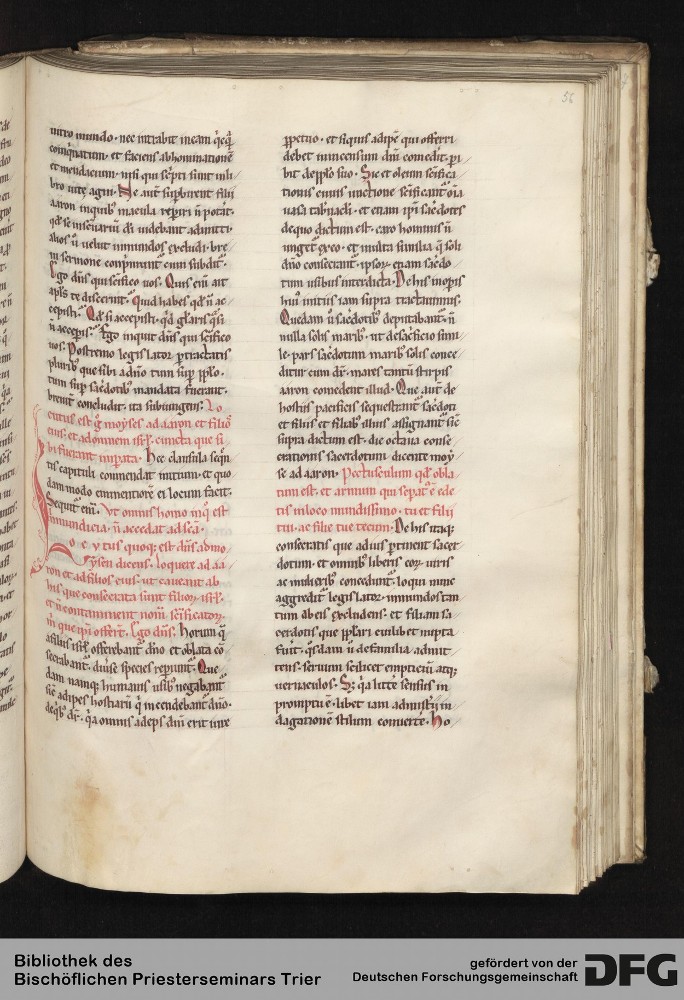 56
intro mundo. nec intrabit in eam
et faciens abhominationē
et mendacium. nisi qui sc̄pti sunt in li
bro uite agni. Ne aut̄ sup̄birent filii
aaron in quib; macula rep̄iri n̄ potat.
mittere
alios u̅ uelut inmundos excludi. bre
ui sermone conp̄munt cum subdit.
Ego dn̄s qui sc̄ifico uos. Quis eni̅ ait
apl̄s te discernit. Quid habes qd̄ n̄ ac
cepisti. Qd̄ si accepisti. qd̄ gl̄aris q̄si
n̄ accep̄is. Ego inquit dn̄s qui sc̄ifico
uos. Postremo legislator p̄tractatis
plurib; que sibi a dn̄o tum sup̄ pp̄lo.
tum sup̄ sac̄dotib; mandata fuerant.
breuit̄ concludit. ita subiungens. Lo
cutus est g̊ moyses ad aaron et filio
eius. et ad omnem isrl̄. cuncta que si
bi fuerant imp̄ata. Hec clausula seq̄n
tis capituli commendat initium. et quo
dam modo eminentiorē ei locum facit.
Sequit̄ eni̅. Vt omnis homo in q̊ est
inmundicia. n̄ accedat ad sc̄a.
Locutus quoq; est dn̄s ad mo
ysen dicens. loquere ad aa
ron et ad filios eius. ut caueant ab
his que consecrata sunt filior̄ isrl̄.
et n̄ contaminent nom̄ sc̄ificator̄
m̄ que ip̄i offer̄t. Ego dn̄s. Horum q̄
a filiis isrl̄ offerebant̄ dn̄o et oblata cō
secrabant̄. diuerse species rep̄iunt̄. Que
dam namq; humanis usib; negabant̄
sic̄ adipes hostiarū q̄ incendebant̄ dn̄o.
de q̄b; dr̄. q̄a omnis adeps dn̄i erit iure
pp̄etuo. et siquis adipē qui offerri
debet in incensum dn̄i comedit. p̄i
bit de pp̄lo suo. Sic et oleum sc̄ifica
tionis cuius unctione sc̄ificant̄ om̄ia
uasa tab̄nacli. et etiam ip̄i sac̄dotes
de quo dictum est. caro hominis n̄
unget̄ ex eo. et multa similia q̄ soli
dn̄o consecrant̄. ipsor̄ etiam sac̄do
tum usibus interdicta. De his in op̄is
hui; initiis iam supra tractauimus.
Quedam u̅ sac̄dotib; deputabant̄. n̄
nulla solis marib;. ut de sac̄ficio simi
le. pars sac̄dotum marib; solis conce
ditur cum dr̄. mares tantū stirpis
aaron comedent illud. Que aut̄ de
hostiis pacificis sequestrant̄ sac̄doti
et filiis et filiab; illius assignant̄ sic̄
supra dictum est. die octaua conse
crationis sacerdotum dicente moy
se ad aaron. Pectusculum qd̄ obla
tum est. et armum qui sep̄at; ē ede
tis in loco mundissimo. tu et filii
tui. ac filie tue tecum. De his itaq;
consecratis que ad ius p̄tinent sacer
dotum. et omnib; liberis eor̄. uiris
ac mulierib; concedunt̄. loqui nunc
aggredit̄ legislator. inmundos tan
tum ab eis excludens. et filiam sa
cerdotis que pp̄lari cuilibet nupta
fuit. q̄sdam u̅ de familia admit
tens. seruum scilicet empticiū atq;
uernaculos. S; q̄a litt̄e sensus in
promptu ē. libet iam ad mistīi in
dagationē stilum conuerte. Ho
Bibliothek des
Bischöflichen Priesterseminars Trier
gefördert von der
Deutschen Forschungsgemeinschaft
DFG